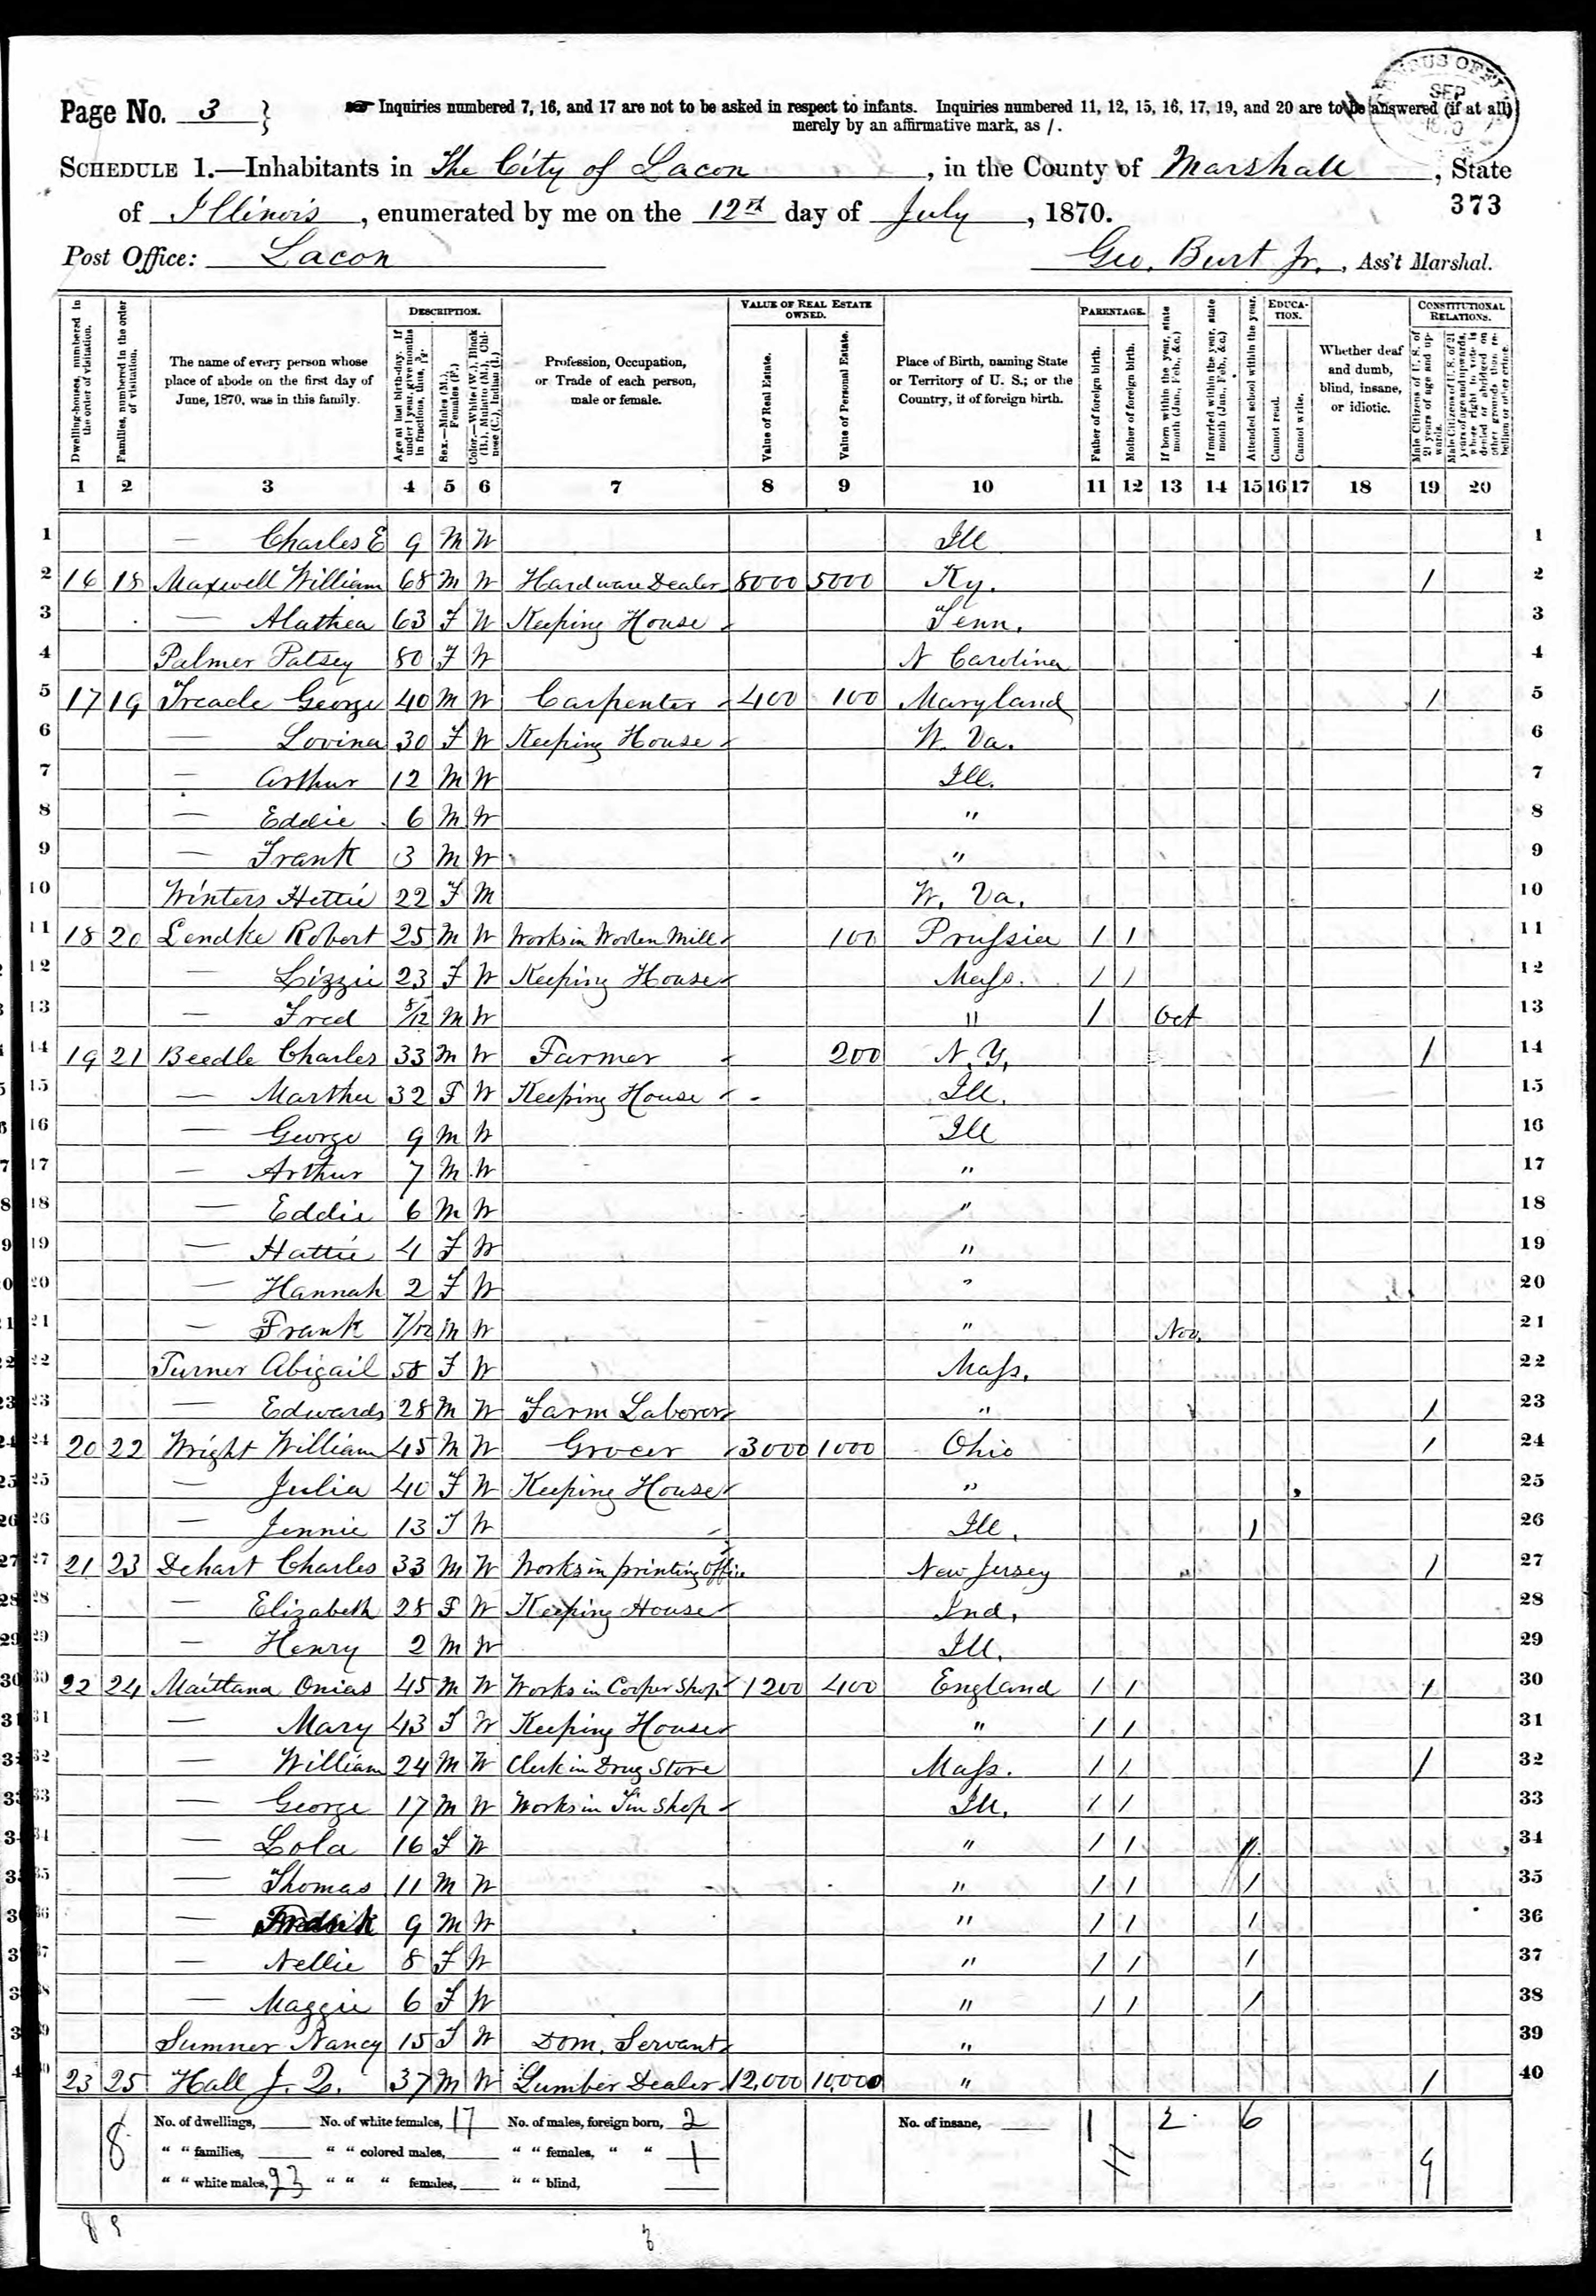 CENSUS OFFICE SEP 1870
Page No. 3 } ☛ Inquiries numbered 7, 16, and 17 are not to be asked in respect to infants. Inquiries numbered 11, 12, 15, 16, 17, 19, and 20 are to be answered (if at all)
merely by an affirmative mark, as /.
SCHEDULE 1.—Inhabitants in The City of Lacon, in the County of Marshall, State
of Illinois, enumerated by me on the 12th day of July, 1870.
373
Post Office: Lacon
Geo. Burt Jr., Ass't Marshal.
Dwelling-houses, numbered in the order of visitation.
Families, numbered in the order of visitation.
The name of every person whose place of abode on the first day of June, 1870, was in this family.
DESCRIPTION.
Age at last birth-day. If under 1 year, give months in fractions, thus, 3/12.
Sex.—Males (M.), Females (F.)
Color.—White (W.), Black (B.), Mulatto (M.), Chinese (C.), Indian (I.)
Profession, Occupation, or Trade of each person, male or female.
VALUE OF REAL ESTATE OWNED.
Value of Real Estate.
Value of Personal Estate.
Place of Birth, naming State or Territory of U. S.; or the Country, if of foreign birth.
PARENTAGE.
Father of foreign birth.
Mother of foreign birth.
If born within the year, state month (Jan., Feb., &c.)
If married within the year, state month (Jan., Feb., &c.)
Attended school within the year.
EDUCATION.
Cannot read.
Cannot write.
Whether deaf and dumb, blind, insane, or idiotic.
CONSTITUTIONAL RELATIONS.
Male Citizens of U. S. of 21 years of age and upwards.
Male Citizens of U. S. of 21 years of age and upwards, whose right to vote is denied or abridged on other grounds than rebellion or other crime.
1 2 3 4 5 6 7 8 9 10 11 12 13 14 15 16 17 18 19 20
1 — Charles E 9 M W Ill 1
2 16 18 Maxwell William 68 M W Hardware Dealer 8000 5000 Ky. / 2
3 — Alathea 63 F W Keeping House Tenn. 3
4 Palmer Patsey 80 F W N Carolina 4
5 17 19 Treacle George 40 M W Carpenter 400 100 Maryland / 5
6 — Lovina 30 F W Keeping House W. Va. 6
7 — Arthur 12 M W Ill. 7
8 — Eddie 6 M W " 8
9 — Frank 3 M W " 9
10 Winters Hettie 22 F M W. Va. 10
11 18 20 Lendke Robert 25 M W Works in Woolen Mill 100 Prussia / / 11
12 — Lizzie 23 F W Keeping House Mass. / / 12
13 — Fred 8/12 M W " / Oct 13
14 19 21 Beedle Charles 33 M W Farmer 200 N. Y. / 14
15 — Martha 32 F W Keeping House Ill. 15
16 — George 9 M W Ill 16
17 — Arthur 7 M W " 17
18 — Eddie 6 M W " 18
19 — Hattie 4 F W " 19
20 — Hannah 2 F W " 20
21 — Frank 7/12 M W " Nov. 21
22 Turner Abigail 58 F W Mass. 22
23 — Edwards 28 M W Farm Laborer " / 23
24 20 22 Wright William 45 M W Grocer 3000 1000 Ohio / 24
25 — Julia 40 F W Keeping House " 25
26 — Jennie 13 F W Ill. / 26
27 21 23 Dehart Charles 33 M W Works in printing Office New Jersey / 27
28 — Elizabeth 28 F W Keeping House Ind. 28
29 — Henry 2 M W Ill. 29
30 22 24 Maitland Onias 45 M W Works in Cooper Shop 1200 400 England / / / 30
31 — Mary 43 F W Keeping House " / / 31
32 — William 24 M W Clerk in Drug Store Mass. / / / 32
33 — George 17 M W Works in Tin Shop Ill. / / 33
34 — Lola 16 F W " / / / 34
35 — Thomas 11 M W " / / / 35
36 — Fredrik 9 M W " / / / 36
37 — Nellie 8 F W " / / / 37
38 — Maggie 6 F W " / / / 38
39 Sumner Nancy 15 F W Dom. Servant " 39
40 23 25 Hall J. 37 M W Lumber Dealer 12,000 10,000 " / 40
8 No. of dwellings, No. of white females, 17 No. of males, foreign born, 2 No. of insane, 1 2 6
" " families, " " colored males, " " females, " " 1 11
" " white males, 23 " " " females, " " blind, 9